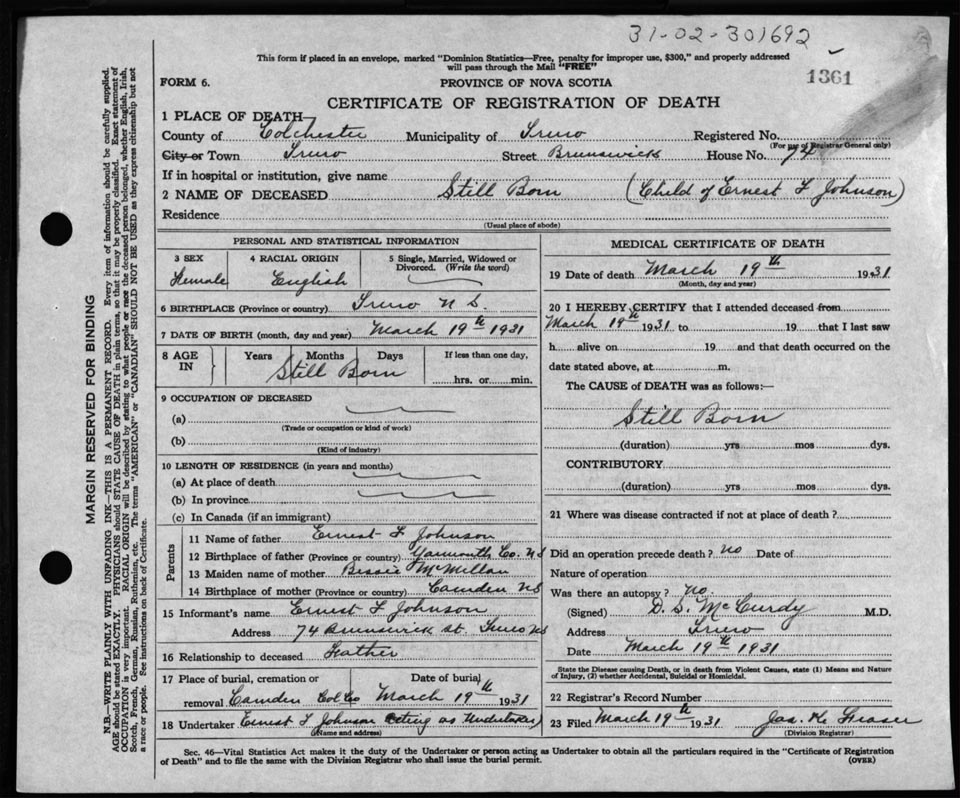 31-02-301692
This form if placed in an envelope, marked "Dominion Statistics—Free, penalty for improper use, $300," and properly addressed
will pass through the Mail "FREE"
1361
FORM 6.
PROVINCE OF NOVA SCOTIA
CERTIFICATE OF REGISTRATION OF DEATH
1 PLACE OF DEATH
County of Colchester Municipality of Truro Registered No.
(For use of Registrar General only)
City or Town Truro Street Brunswick House No. 74
If in hospital or institution, give name
2 NAME OF DECEASED Still Born (Child of Ernest F Johnson)
Residence
(Usual place of abode)
PERSONAL AND STATISTICAL INFORMATION
3 SEX
Female
4 RACIAL ORIGIN
English
5 Single, Married, Widowed or
Divorced. (Write the word)
6 BIRTHPLACE (Province or country) Truro N S
7 DATE OF BIRTH (month, day and year) March 19th 1931
8 AGE IN
Years Months Days
Still Born
If less than one day,
hrs. or min.
9 OCCUPATION OF DECEASED
(a)
(Trade or occupation or kind of work)
(b)
(Kind of industry)
10 LENGTH OF RESIDENCE (in years and months)
(a) At place of death
(b) In province
(c) In Canada (if an immigrant)
Parents
11 Name of father Ernest F Johnson
12 Birthplace of father (Province or country) Yarmouth Co. N S
13 Maiden name of mother Bessie McMillan
14 Birthplace of mother (Province or country) Camden N S
15 Informant's name Ernest F Johnson
Address 74 Brunswick St. Truro N S
16 Relationship to deceased Father
17 Place of burial, cremation or Date of burial
removal Camden Col Co March 19th 1931
18 Undertaker Ernest F Johnson acting as Undertaker)
(Name and address)
MEDICAL CERTIFICATE OF DEATH
19 Date of death March 19th 1931
(Month, day and year)
20 I HEREBY CERTIFY that I attended deceased from
March 19th 1931 to 19 that I last saw
h alive on 19 and that death occurred on the
date stated above, at m.
The CAUSE of DEATH was as follows:—
Still Born
(duration) yrs mos dys.
CONTRIBUTORY
(duration) yrs mos dys.
21 Where was disease contracted if not at place of death?
Did an operation precede death? no Date of
Nature of operation
Was there an autopsy? no.
(Signed) D. S. McCurdy M.D.
Address Truro
Date March 19th 1931
State the Disease causing Death, or in death from Violent Causes, state (1) Means and Nature
of Injury, (2) whether Accidental, Suicidal or Homicidal.
22 Registrar's Record Number
23 Filed March 19th 1931 Jas. K Fraser
(Division Registrar)
Sec. 46—Vital Statistics Act makes it the duty of the Undertaker or person acting as Undertaker to obtain all the particulars required in the "Certificate of Registration
of Death" and to file the same with the Division Registrar who shall issue the burial permit.
(OVER)
MARGIN RESERVED FOR BINDING
N.B.—WRITE PLAINLY WITH UNFADING INK—THIS IS A PERMANENT RECORD. Every item of information should be carefully supplied.
AGE should be stated EXACTLY. PHYSICIANS should STATE CAUSE OF DEATH in plain terms, so that it may be properly classified. Exact statement of
OCCUPATION is very important. RACIAL ORIGIN will be described by stating to what people or race the deceased person belonged, whether English, Irish,
Scotch, French, German, Russian, Ruthenian, etc. The terms "AMERICAN" or "CANADIAN" SHOULD NOT BE USED as they express citizenship but not
a race or people. See instructions on back of Certificate.